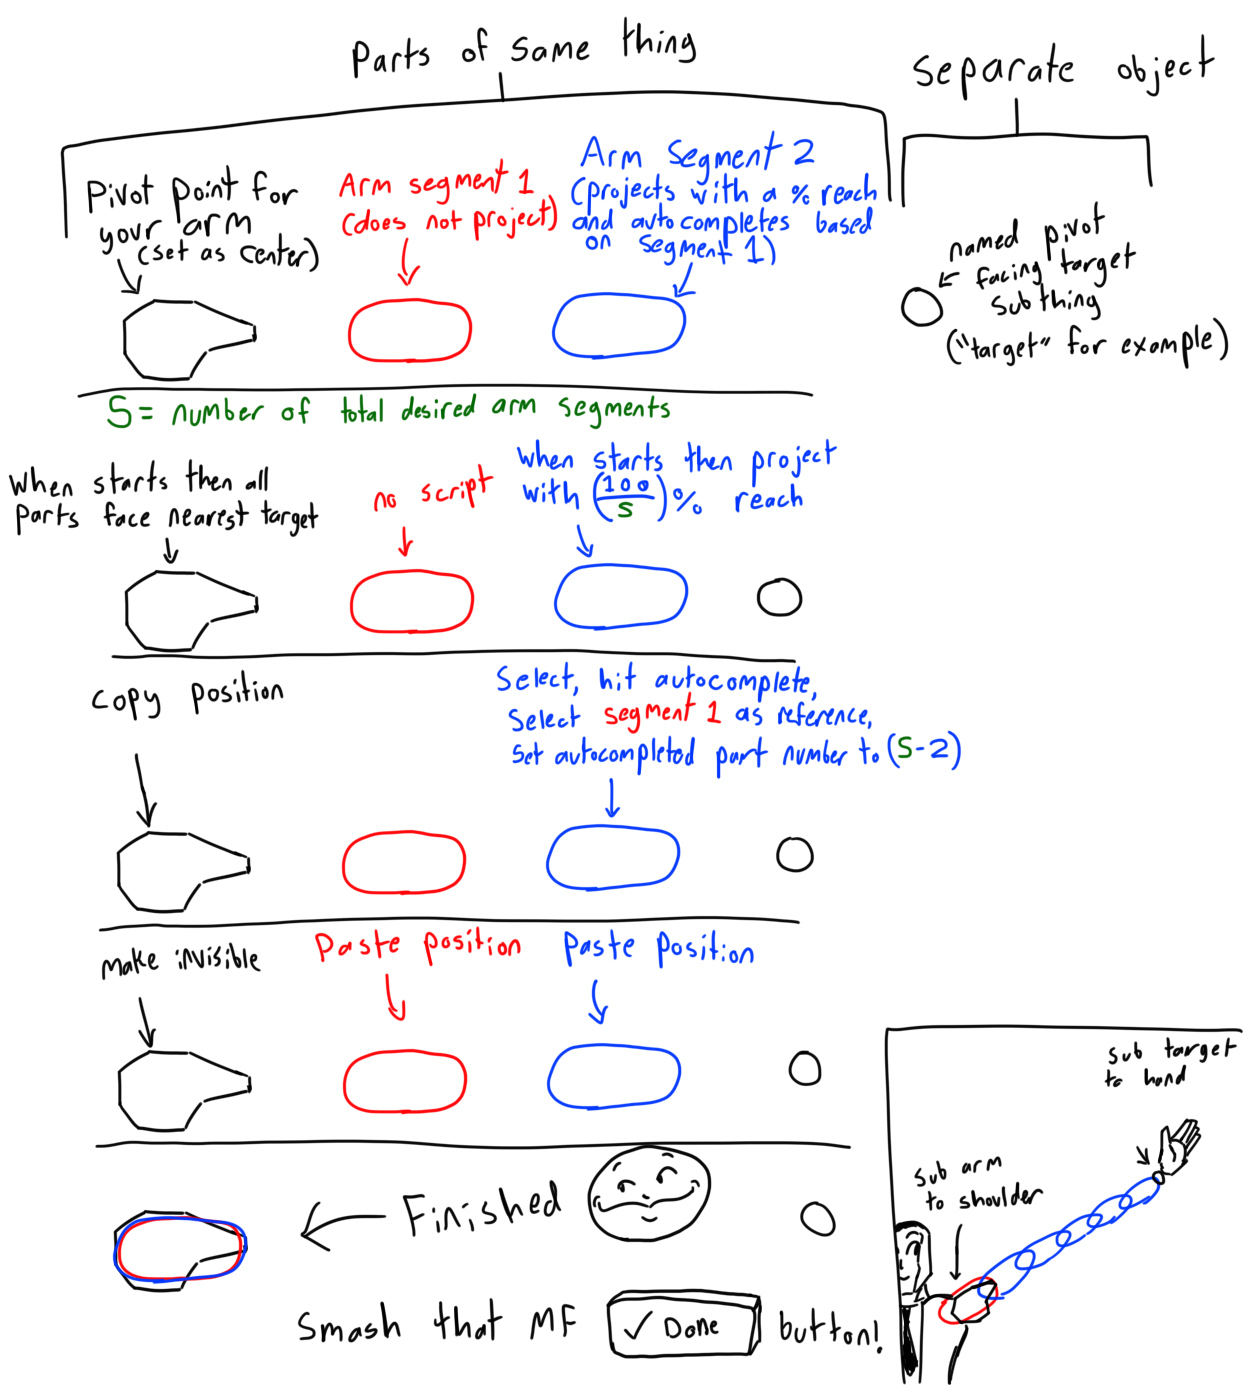 Parts of same thing
Separate object
Pivot point for
your arm
(set as center)
Arm segment 1
(does not project)
Arm Segment 2
(projects with a % reach
and autocompletes based
on segment 1)
named pivot
facing target
subthing
("target" for example)
S = number of total desired arm segments
When starts then all
parts face nearest target
no script
when starts then project
with (100/S)% reach
copy position
Select, hit autocomplete,
Select segment 1 as reference,
Set autocompleted part number to (S-2)
make invisible
Paste position
Paste position
Finished
Smash that MF ✓ Done button!
Sub target
to hand
Sub arm
to shoulder